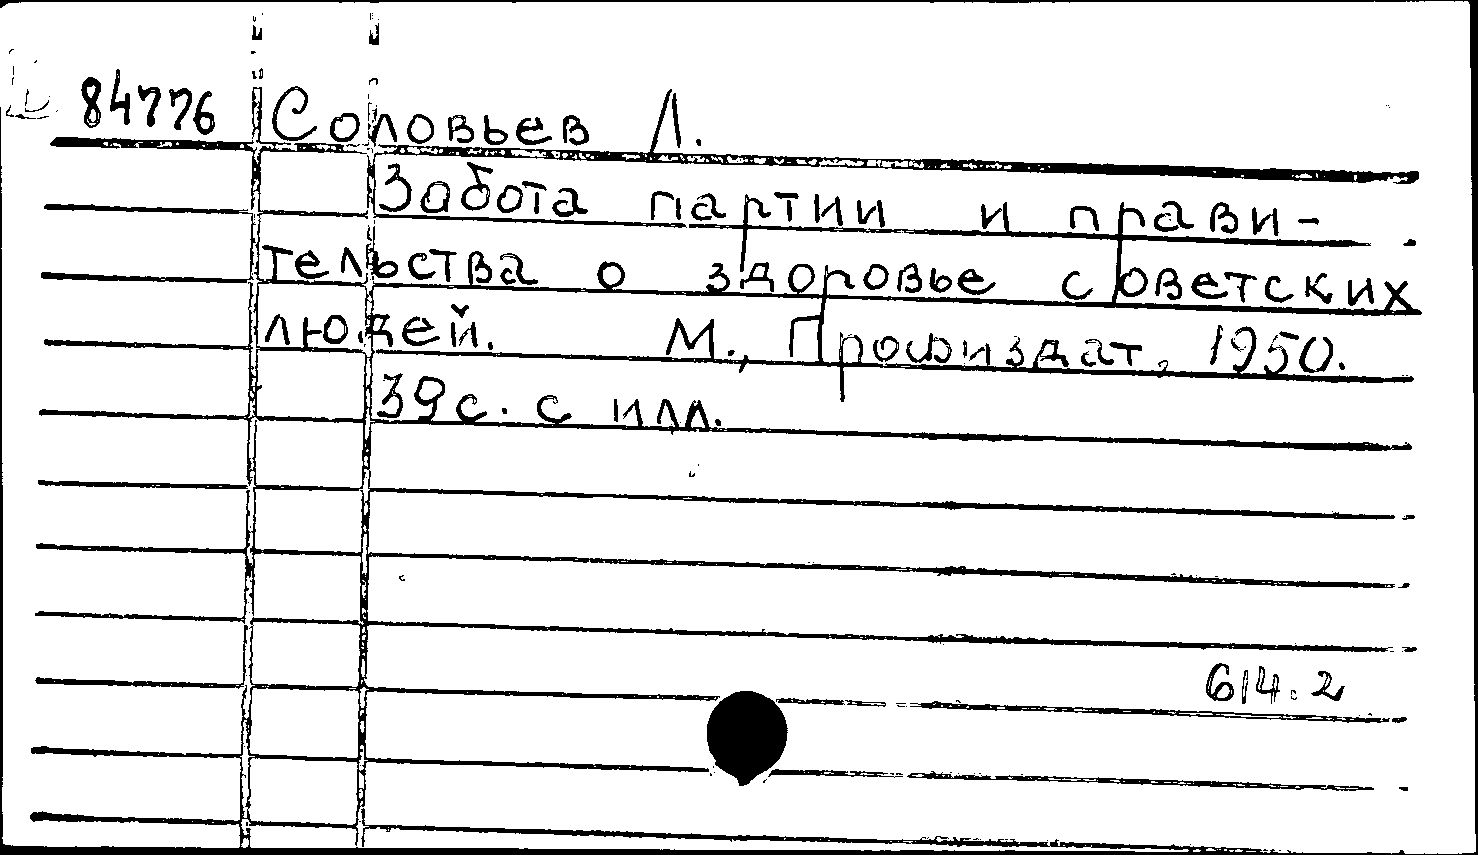 84776 Соловьев Л.
Забота партии и прави-
тельства о здоровье советских
людей. М., Профиздат, 1950.
39 с. с илл.
614.2